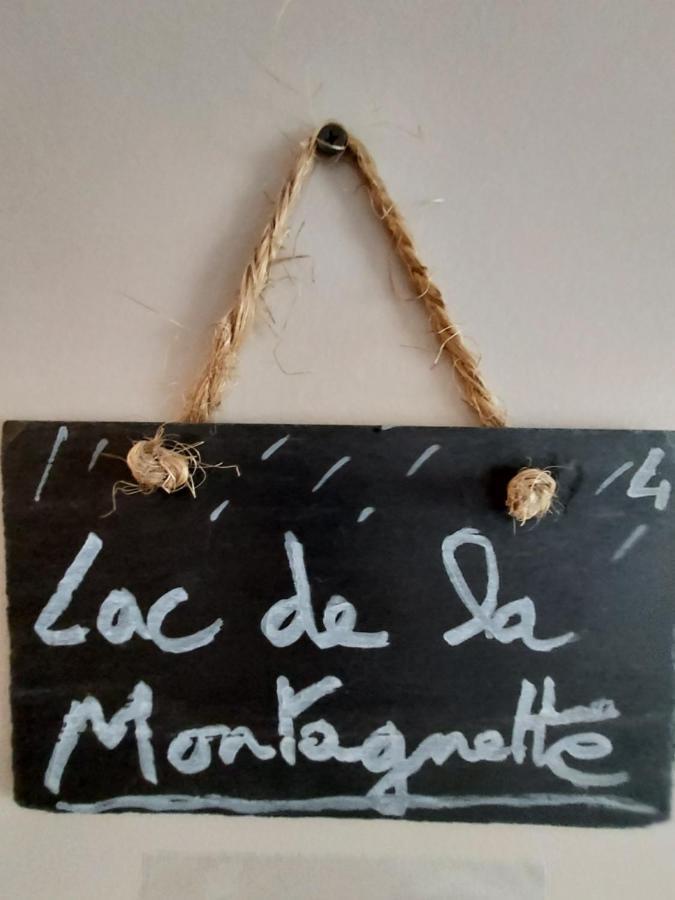 4
Lac de la
Montagnette